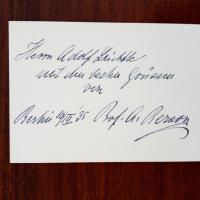 Herrn Adolf
mit den besten Grüssen
von
Berlin IV 35 Prof. A. Berson